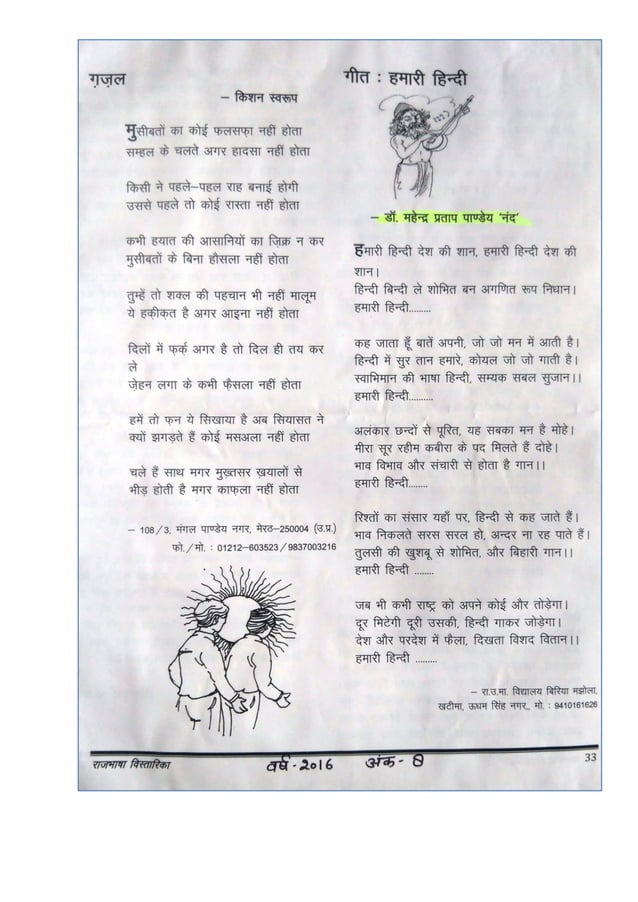 ग़ज़ल
– किशन स्वरूप
मुसीबतों का कोई फलसफ़ा नहीं होता
सम्हल के चलते अगर हादसा नहीं होता
किसी ने पहले–पहल राह बनाई होगी
उससे पहले तो कोई रास्ता नहीं होता
कभी हयात की आसानियों का ज़िक्र न कर
मुसीबतों के बिना हौसला नहीं होता
तुम्हें तो शक्ल की पहचान भी नहीं मालूम
ये हक़ीक़त है अगर आइना नहीं होता
दिलों में फ़र्क़ अगर है तो दिल ही तय कर
ले
ज़ेहन लगा के कभी फ़ैसला नहीं होता
हमें तो फ़न ये सिखाया है अब सियासत ने
क्यों झगड़ते हैं कोई मसअला नहीं होता
चले हैं साथ मगर मुख़्तसर ख़यालों से
भीड़ होती है मगर काफ़ला नहीं होता
– 108/3, मंगल पाण्डेय नगर, मेरठ–250004 (उ.प्र.)
फो./मो. : 01212–603523/9837003216
गीत : हमारी हिन्दी
– डॉ. महेन्द्र प्रताप पाण्डेय ‘नंद’
हमारी हिन्दी देश की शान, हमारी हिन्दी देश की
शान।
हिन्दी बिन्दी ले शोभित बन अगणित रूप निधान।
हमारी हिन्दी.........
कह जाता हूँ बातें अपनी, जो जो मन में आती है।
हिन्दी में सुर तान हमारे, कोयल जो जो गाती है।
स्वाभिमान की भाषा हिन्दी, सम्यक सबल सुजान।।
हमारी हिन्दी..........
अलंकार छन्दों से पूरित, यह सबका मन है मोहे।
मीरा सूर रहीम कबीरा के पद मिलते हैं दोहे।
भाव विभाव और संचारी से होता है गान।।
हमारी हिन्दी........
रिश्तों का संसार यहाँ पर, हिन्दी से कह जाते हैं।
भाव निकलते सरस सरल हो, अन्दर ना रह पाते हैं।
तुलसी की खुशबू से शोभित, और बिहारी गान।।
हमारी हिन्दी ........
जब भी कभी राष्ट्र को अपने कोई और तोड़ेगा।
दूर मिटेगी दूरी उसकी, हिन्दी गाकर जोड़ेगा।
देश और परदेश में फैला, दिखता विशद वितान।।
हमारी हिन्दी .........
– रा.उ.मा. विद्यालय बिरिया मझोला,
खटीमा, ऊधम सिंह नगर,, मो. : 9410161626
राजभाषा विस्तारिका
वर्ष - २०१6 अंक - 8
33